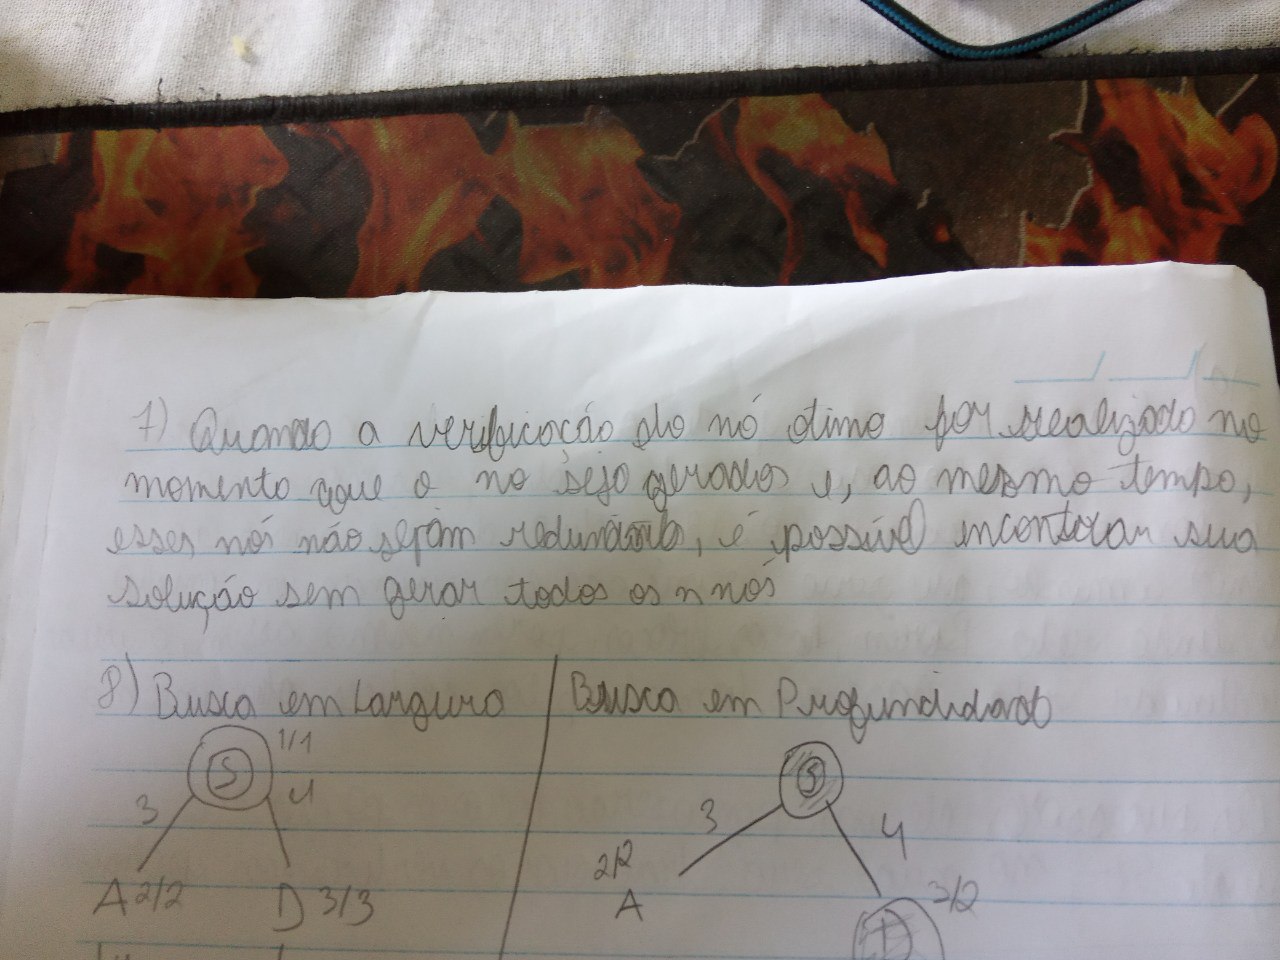 7) Quando a verificação do nó otimo for realizado no
momento que o no seja gerados e, ao mesmo tempo,
esses nós não sejam redundante, é possível encontrar sua
solução sem gerar todos os n nós
8) Busca em Largura
Busca em Profundidade
S 1/1
3 4
A 2/2 D 3/3
S
3 4
2/2 3/2
A D